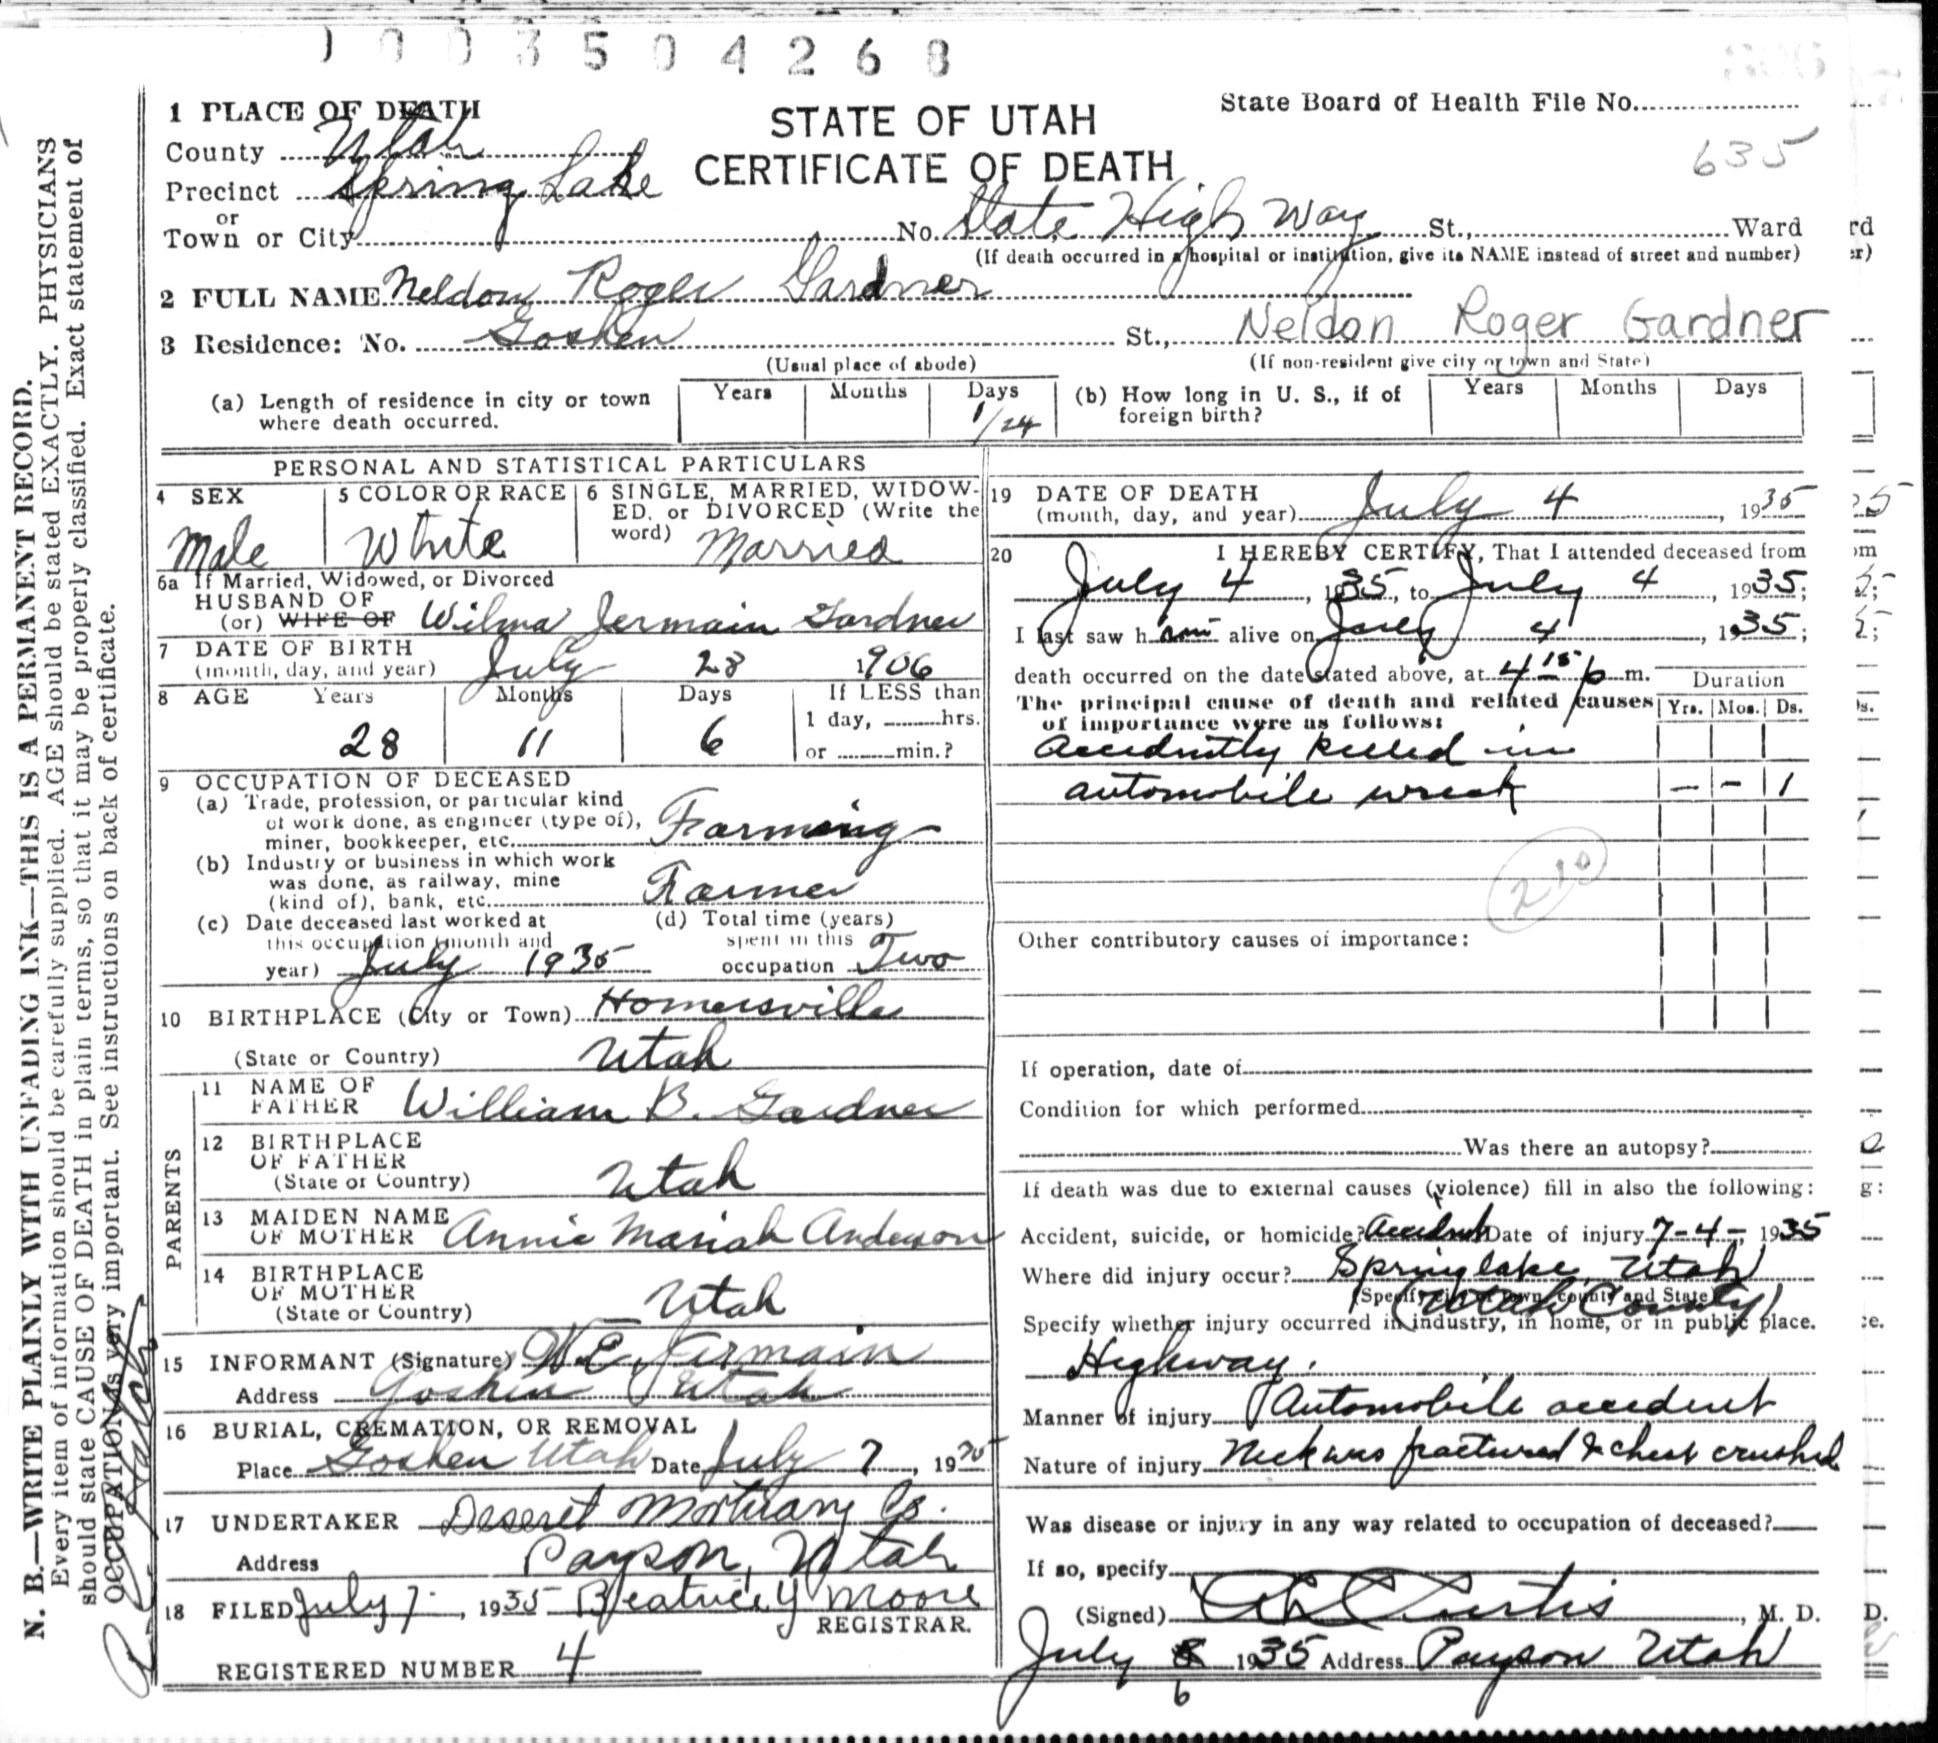 1 0 0 3 5 0 4 2 6 8
1 PLACE OF DEATH
STATE OF UTAH
CERTIFICATE OF DEATH
State Board of Health File No.
635
County Utah
Precinct Spring Lake
or
Town or City No. State High Way St., Ward
(If death occurred in a hospital or institution, give its NAME instead of street and number)
2 FULL NAME Neldon Roger Gardner
3 Residence: No. Goshen St., Neldon Roger Gardner
(Usual place of abode) (If non-resident give city or town and State)
(a) Length of residence in city or town where death occurred. Years Months Days 1/24
(b) How long in U. S., if of foreign birth? Years Months Days
PERSONAL AND STATISTICAL PARTICULARS
4 SEX
Male
5 COLOR OR RACE
White
6 SINGLE, MARRIED, WIDOW-
ED, or DIVORCED (Write the
word) Married
6a If Married, Widowed, or Divorced
HUSBAND OF
(or) WIFE OF Wilma Jermain Gardner
7 DATE OF BIRTH
(month, day, and year) July 28 1906
8 AGE Years Months Days If LESS than
1 day, hrs.
28 11 6 or min.?
9 OCCUPATION OF DECEASED
(a) Trade, profession, or particular kind
of work done, as engineer (type of),
miner, bookkeeper, etc. Farming
(b) Industry or business in which work
was done, as railway, mine
(kind of), bank, etc. Farmer
(c) Date deceased last worked at
this occupation (month and
year) July 1935
(d) Total time (years)
spent in this
occupation Two
10 BIRTHPLACE (City or Town) Homersville
(State or Country) Utah
PARENTS
11 NAME OF
FATHER William B. Gardner
12 BIRTHPLACE
OF FATHER
(State or Country) Utah
13 MAIDEN NAME
OF MOTHER Annie Mariah Anderson
14 BIRTHPLACE
OF MOTHER
(State or Country) Utah
15 INFORMANT (Signature) W E Jermain
Address Goshen Utah
16 BURIAL, CREMATION, OR REMOVAL
Place Goshen Utah Date July 7, 1935
17 UNDERTAKER Deseret Mortuary Co.
Address Payson, Utah
18 FILED July 7, 1935 Beatrice Y Moore
REGISTRAR.
REGISTERED NUMBER 4
19 DATE OF DEATH
(month, day, and year) July 4, 1935
20 I HEREBY CERTIFY, That I attended deceased from
July 4, 1935, to July 4, 1935;
I last saw him alive on July 4, 1935;
death occurred on the date stated above, at 4 15 p m.
Duration
The principal cause of death and related causes
of importance were as follows:
Yrs. Mos. Ds.
Accidently killed in
automobile wreck - - 1
210
Other contributory causes of importance:
If operation, date of
Condition for which performed
Was there an autopsy?
If death was due to external causes (violence) fill in also the following:
Accident, suicide, or homicide? Accident Date of injury 7-4-, 1935
Where did injury occur? Springlake, Utah
(Specify city or town, county and State)
(Utah County)
Specify whether injury occurred in industry, in home, or in public place.
Highway.
Manner of injury Automobile accident
Nature of injury Neck was fractured & chest crushed
Was disease or injury in any way related to occupation of deceased?
If so, specify
(Signed) Curtis, M. D.
July 8 1935 Address Payson Utah
6
N. B.—WRITE PLAINLY WITH UNFADING INK—THIS IS A PERMANENT RECORD.
Every item of information should be carefully supplied. AGE should be stated EXACTLY. PHYSICIANS
should state CAUSE OF DEATH in plain terms, so that it may be properly classified. Exact statement of
OCCUPATION is very important. See instructions on back of certificate.